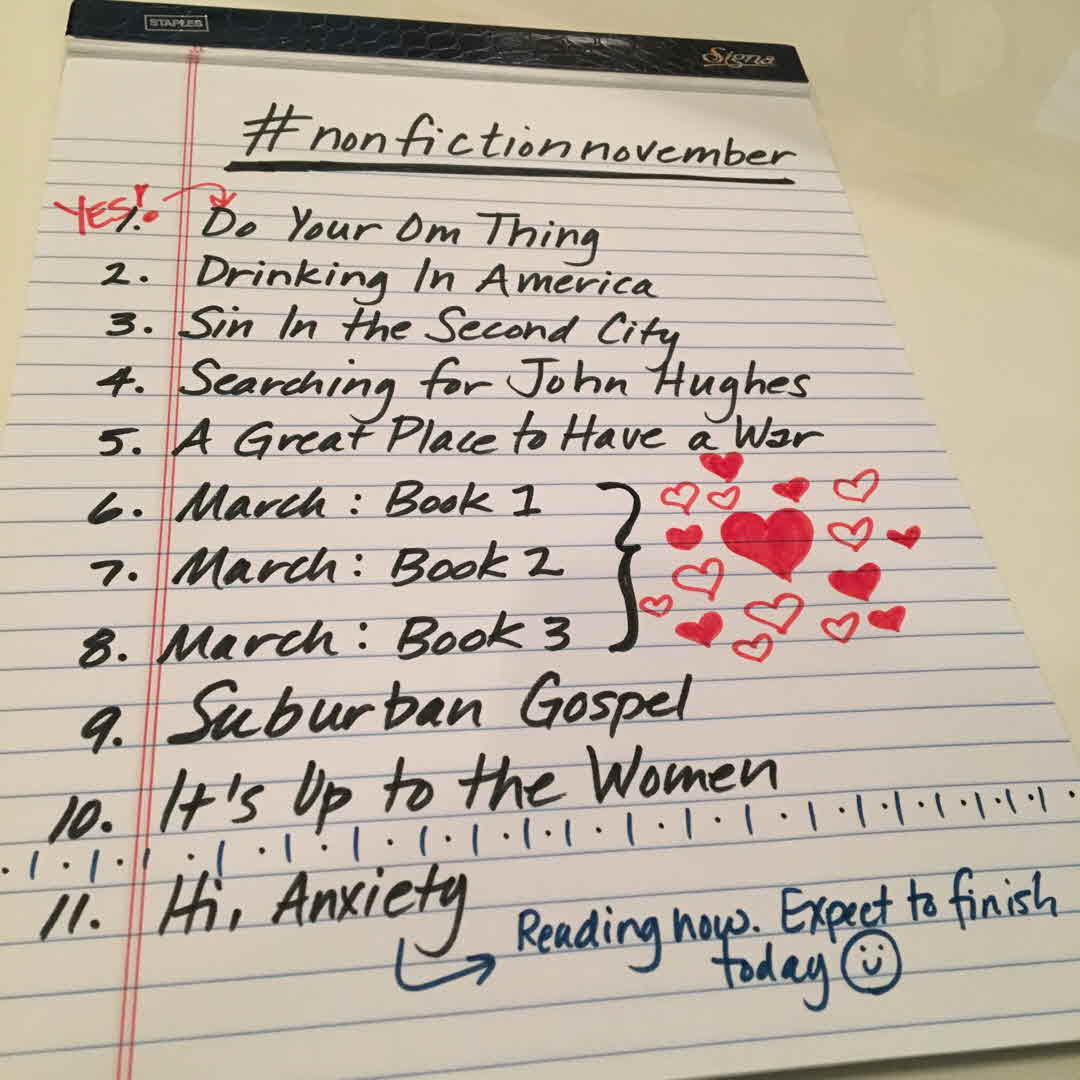 STAPLES
Signa
#nonfictionnovember
YES!
1. Do Your Om Thing
2. Drinking In America
3. Sin In the Second City
4. Searching for John Hughes
5. A Great Place to Have a War
6. March: Book 1
7. March: Book 2
8. March: Book 3
9. Suburban Gospel
10. It's Up to the Women
11. Hi, Anxiety
Reading now. Expect to finish
today